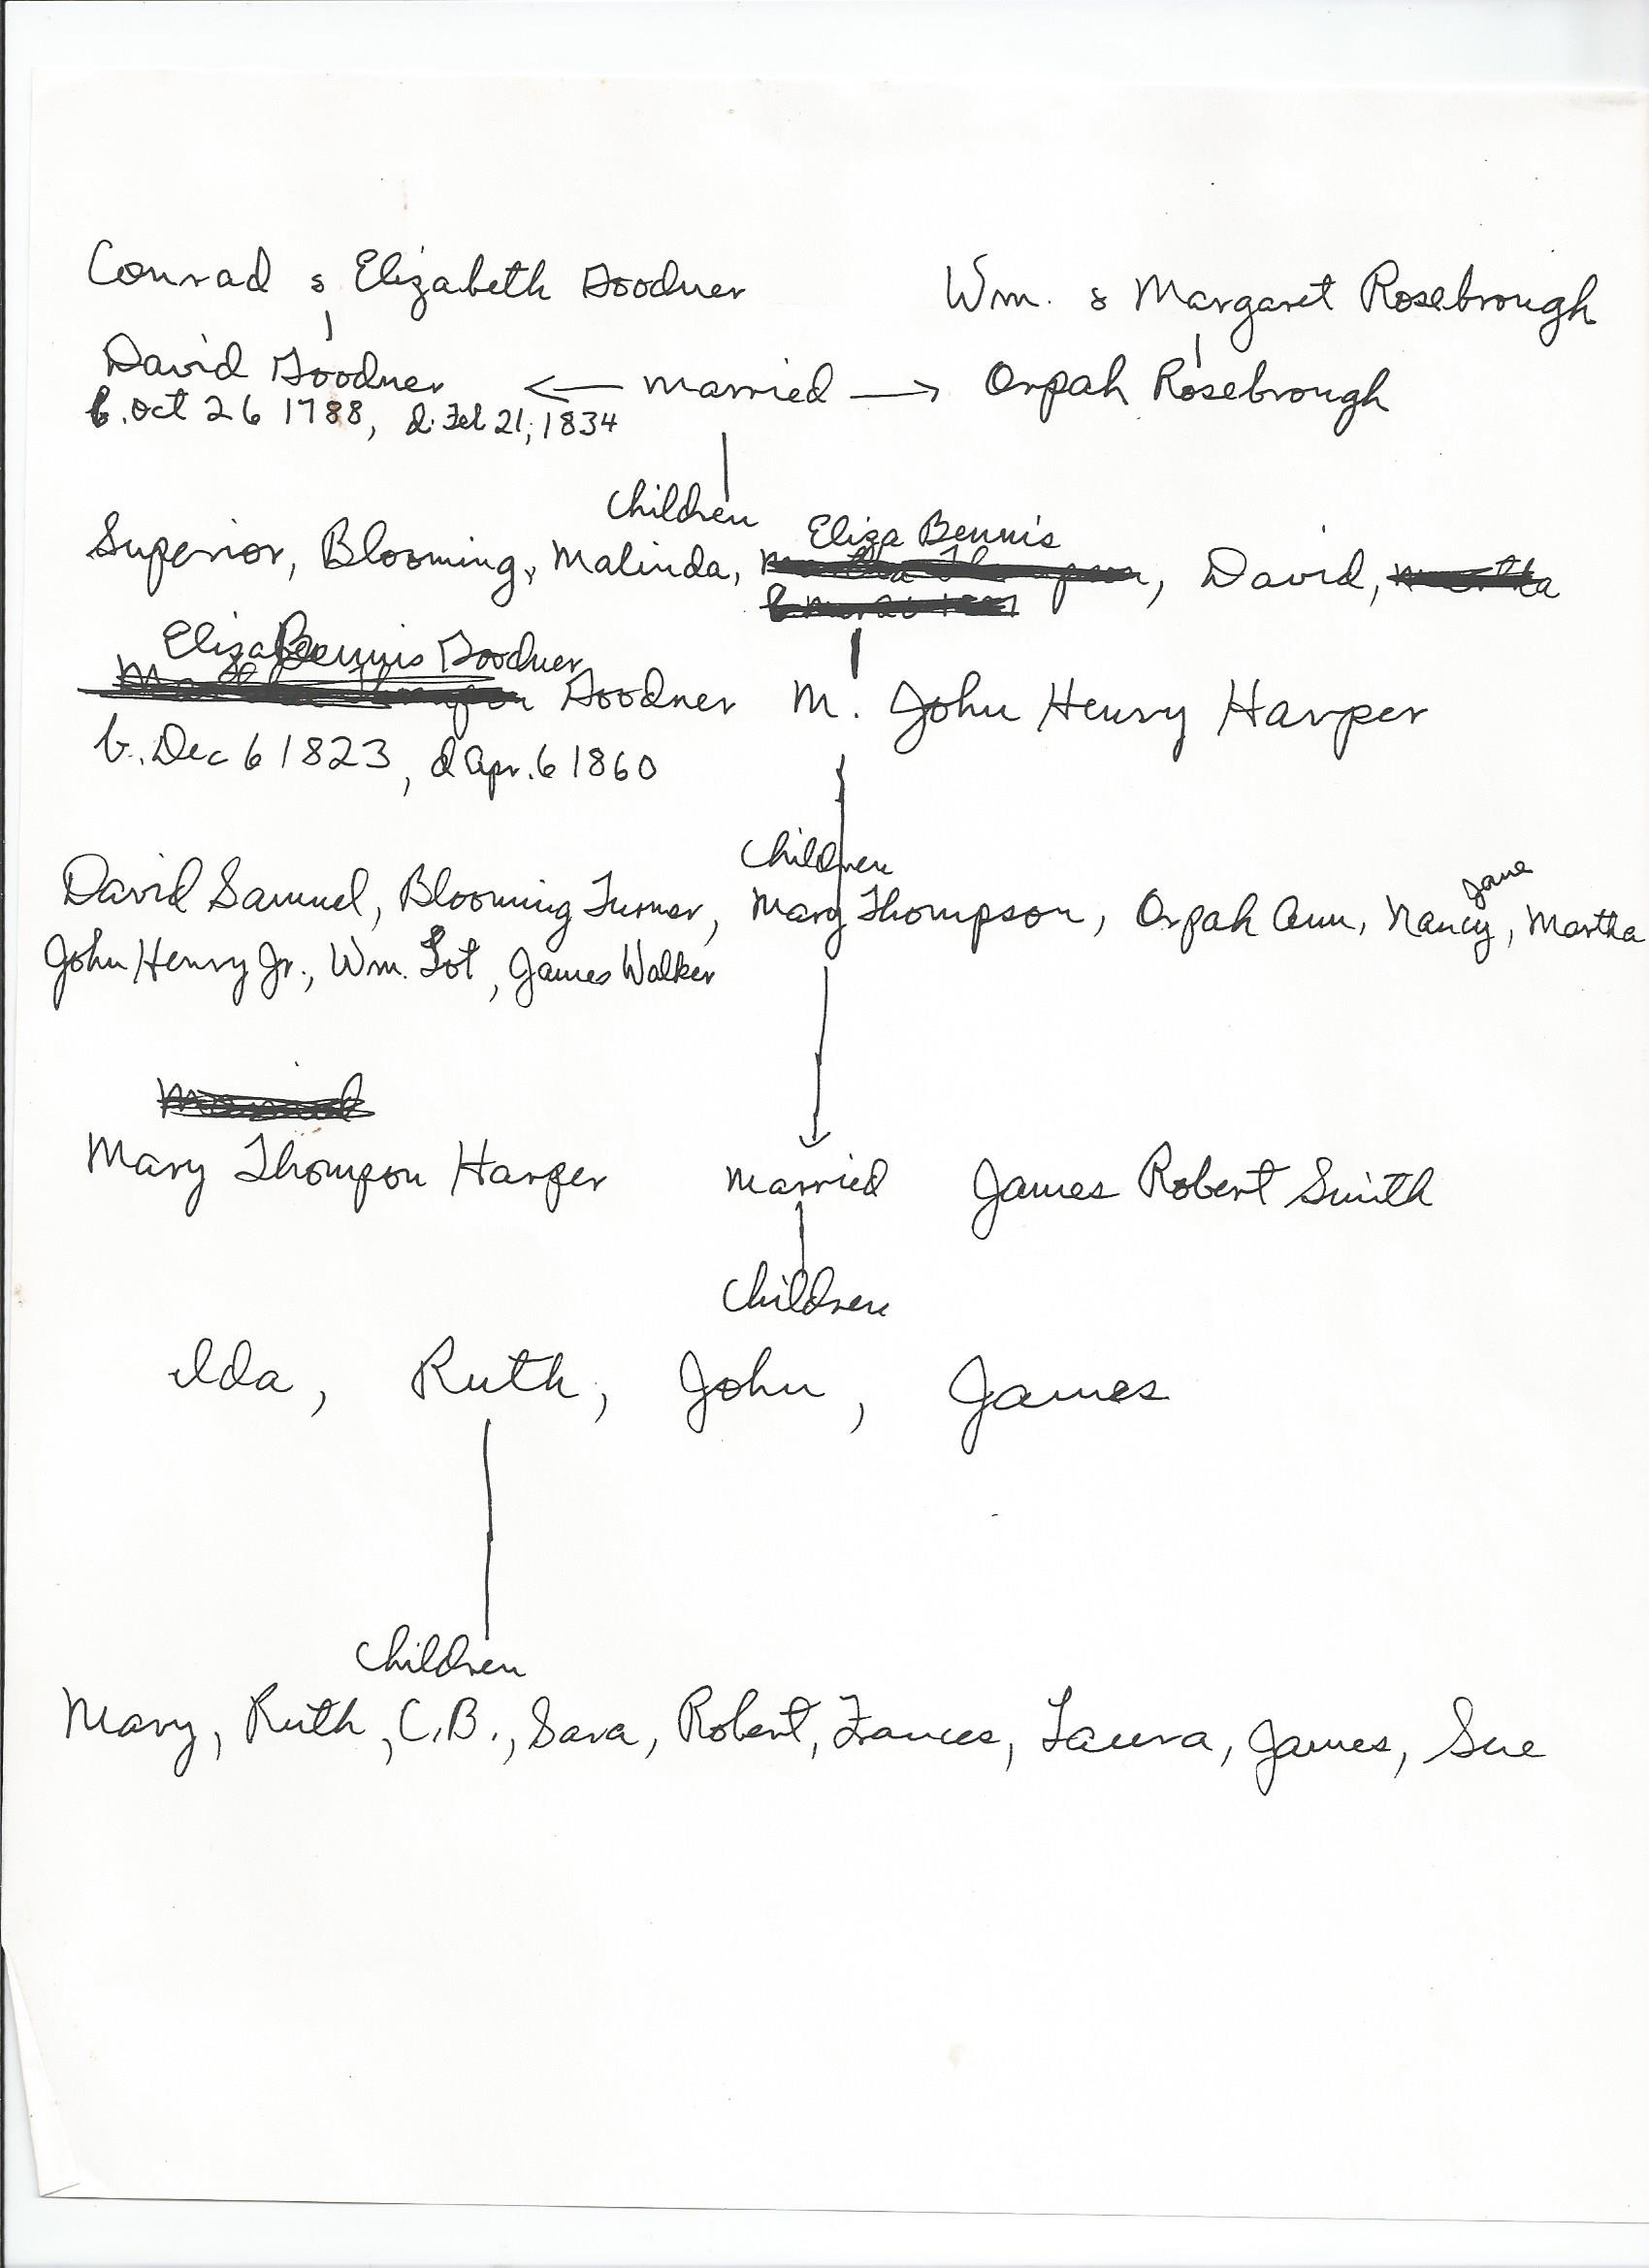 Conrad & Elizabeth Goodner
Wm. & Margaret Rosebrough
David Goodner ← married → Orpah Rosebrough
b. Oct 26 1788, d. Feb 21, 1834
Children
Eliza Bennis
Superior, Blooming, Malinda, , David,
Eliza Bennis Goodner
Goodner M. John Henry Harper
b. Dec 6 1823, d Apr. 6 1860
Children
Jane
David Samuel, Blooming Turner, Mary Thompson, Orpah Ann, Nancy, Martha
John Henry Jr., Wm. Lot, James Walker
Mary Thompson Harper married James Robert Smith
Children
Ida, Ruth, John, James
Children
Mary, Ruth, C.B., Sara, Robert, Frances, Laura, James, Sue